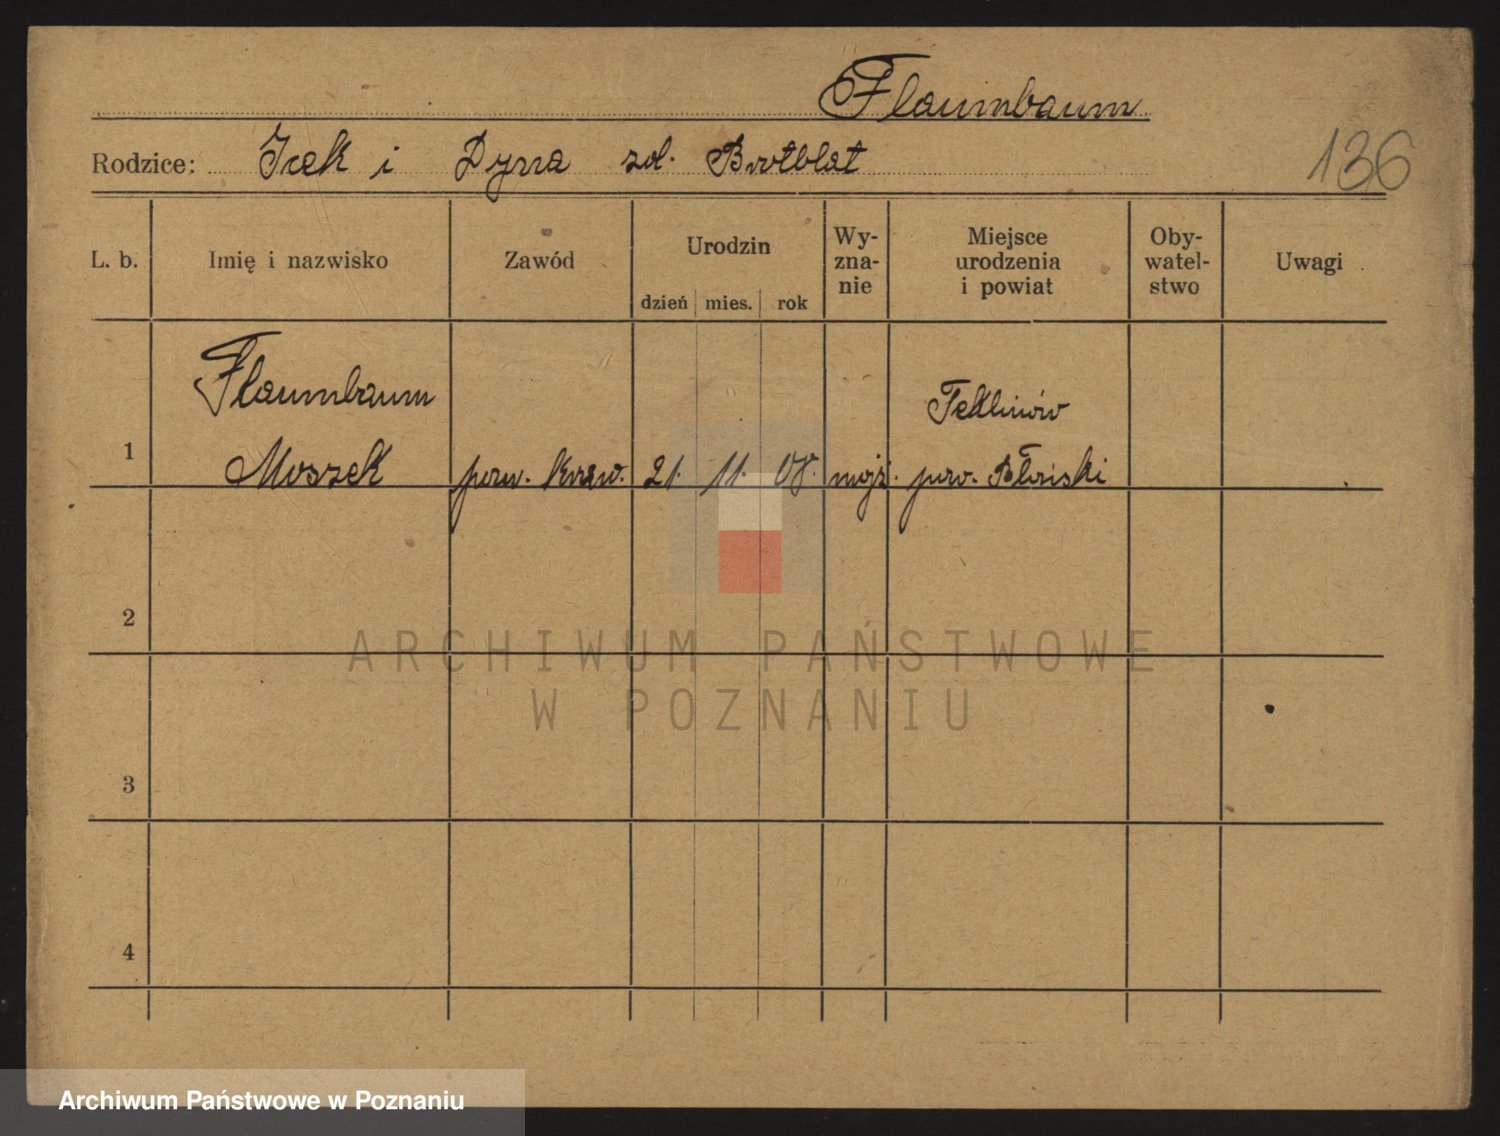 Flaumbaum
Rodzice: Icek i Dyna zd. Brotblat
136
L. b. Imię i nazwisko Zawód Urodzin dzień mies. rok Wy-
zna-
nie Miejsce
urodzenia
i powiat Oby-
watel-
stwo Uwagi
Flaumbaum Teklinów
1 Moszek pow. 21. 11. 08. mojż. pow. Błoński
2
3
4
ARCHIWUM PAŃSTWOWE
W POZNANIU
Archiwum Państwowe w Poznaniu